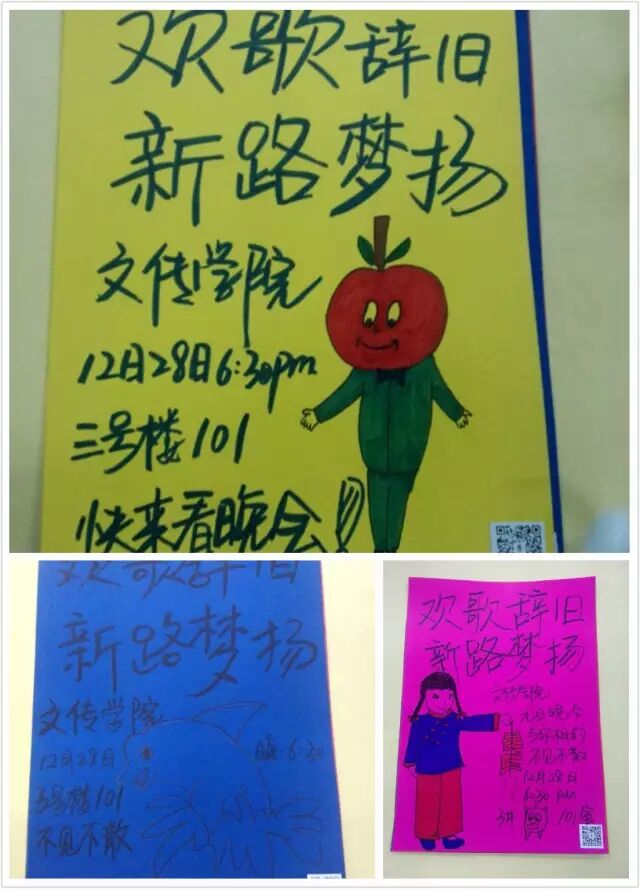 欢歌辞旧
新路梦扬
文传学院
12月28日6:30pm
三号楼101
快来看晚会!!
欢歌辞旧
新路梦扬
文传学院
12月28日
晚6:30
3号楼101
不见不散
欢歌辞旧
新路梦扬
文传学院
元旦晚会
与你相约
不见不散
12月28日
6:30 pm
101室